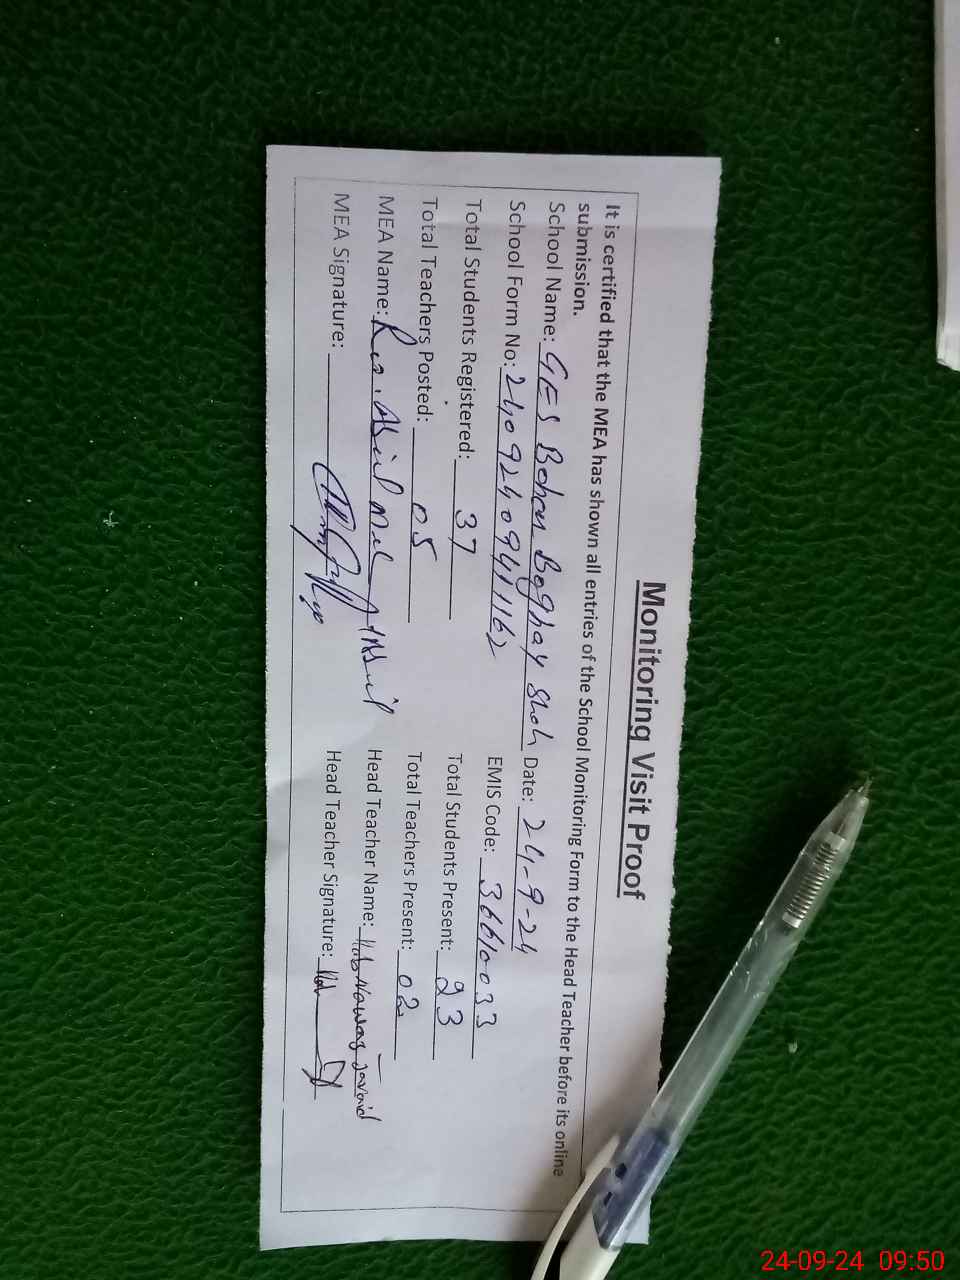 Monitoring Visit Proof
It is certified that the MEA has shown all entries of the School Monitoring Form to the Head Teacher before its online
submission.
School Name: GES Bohar Boghay Shah Date: 24-9-24
School Form No: 24092409411162 EMIS Code: 36610033
Total Students Registered: 37 Total Students Present: 23
Total Teachers Posted: 05 Total Teachers Present: 02
MEA Name: Head Teacher Name: Nawaz Javaid
MEA Signature: Head Teacher Signature:
24-09-24 09:50